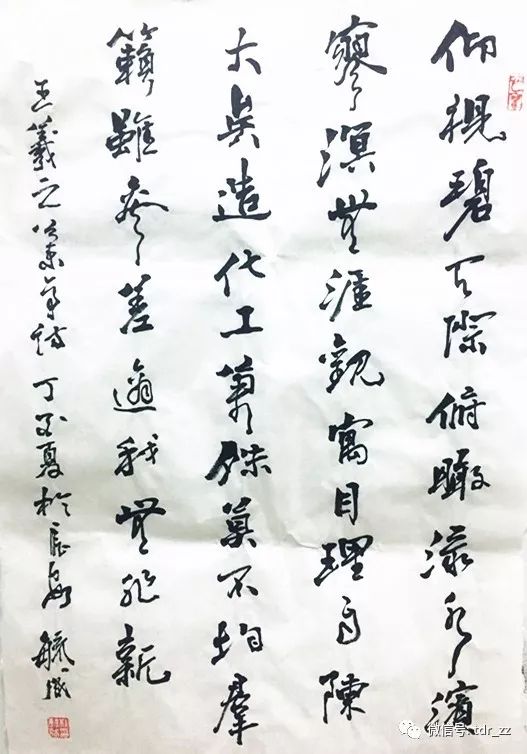 仰視碧天際俯瞰淥水濱
寥溟無涯觀寓目理自陳
大矣造化工萬殊莫不均羣
籟雖參差適我無非新
王羲之 詩 丁酉夏於長安
微信号: tdr_zz